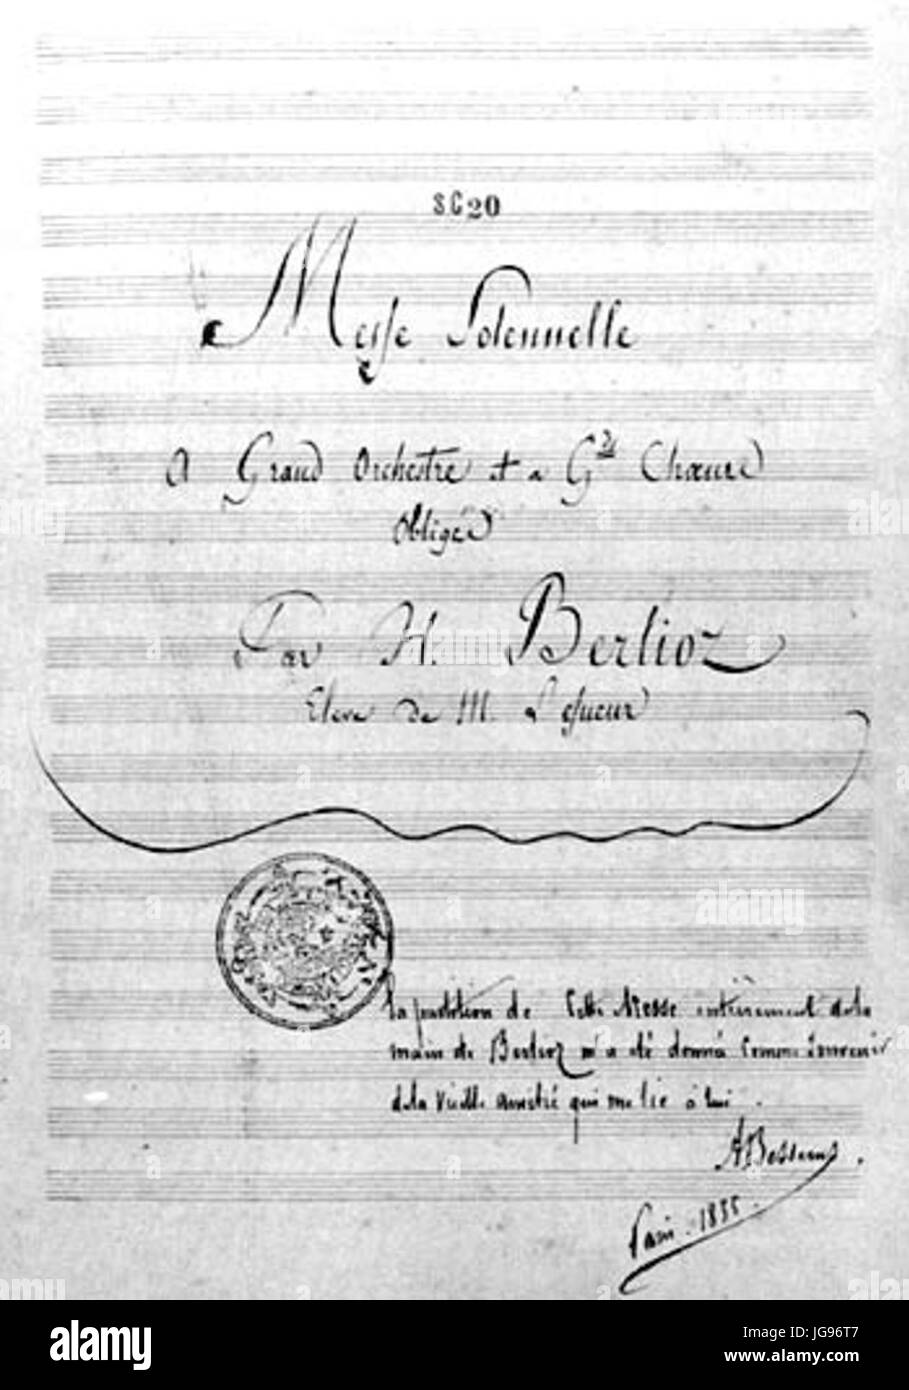 S.C 20
Messe Solennelle
A Grand Orchestre et a Gds Chœurs
Obligés
Par H. Berlioz
Eleve De M. Lesueur
La partition de Cette Messe entièrement de la
main de Berlioz m'a été donnée Comme Souvenir
de la Vieille amitié qui me lie à lui.
ABessems.
Paris. 1835.
alamy
alamy stock photo
JG96T7
www.alamy.com